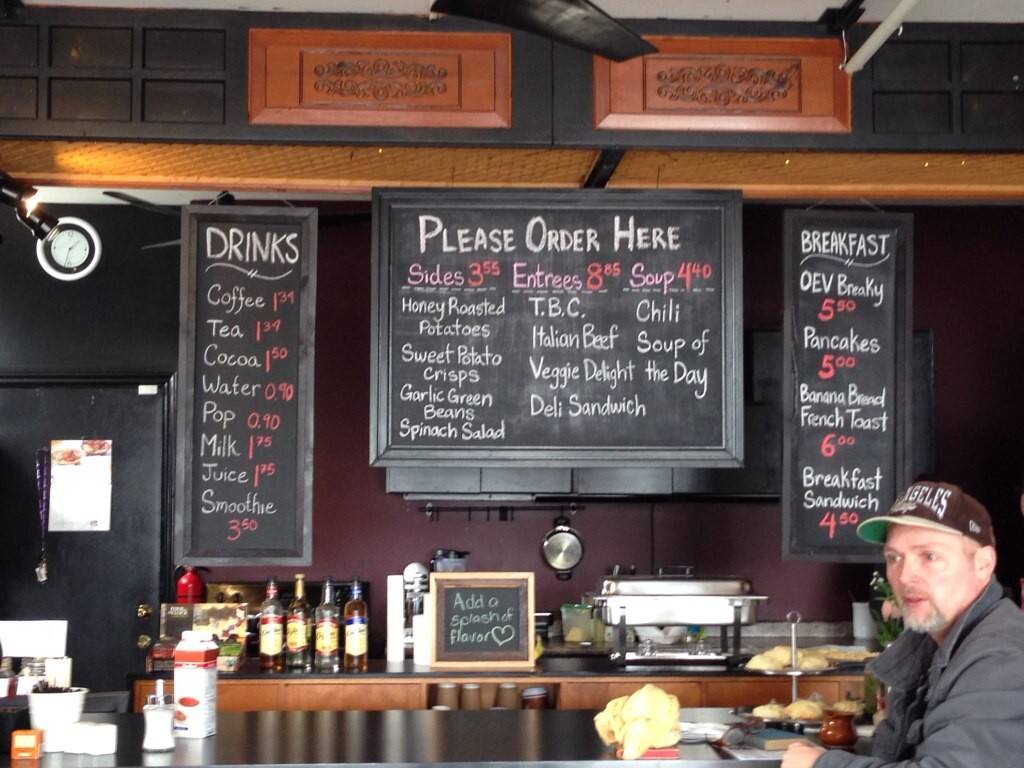 DRINKS
Coffee 1.39
Tea 1.39
Cocoa 1.50
Water 0.90
Pop 0.90
Milk 1.75
Juice 1.75
Smoothie
3.50
PLEASE ORDER HERE
Sides 3.55
Honey Roasted
Potatoes
Sweet Potato
Crisps
Garlic Green
Beans
Spinach Salad
Entrees 8.85
T.B.C.
Italian Beef
Veggie Delight
Deli Sandwich
Soup 4.40
Chili
Soup of
the Day
BREAKFAST
OEV Breaky
5.50
Pancakes
5.00
Banana Bread
French Toast
6.00
Breakfast
Sandwich
4.50
Add a
splash of
flavor